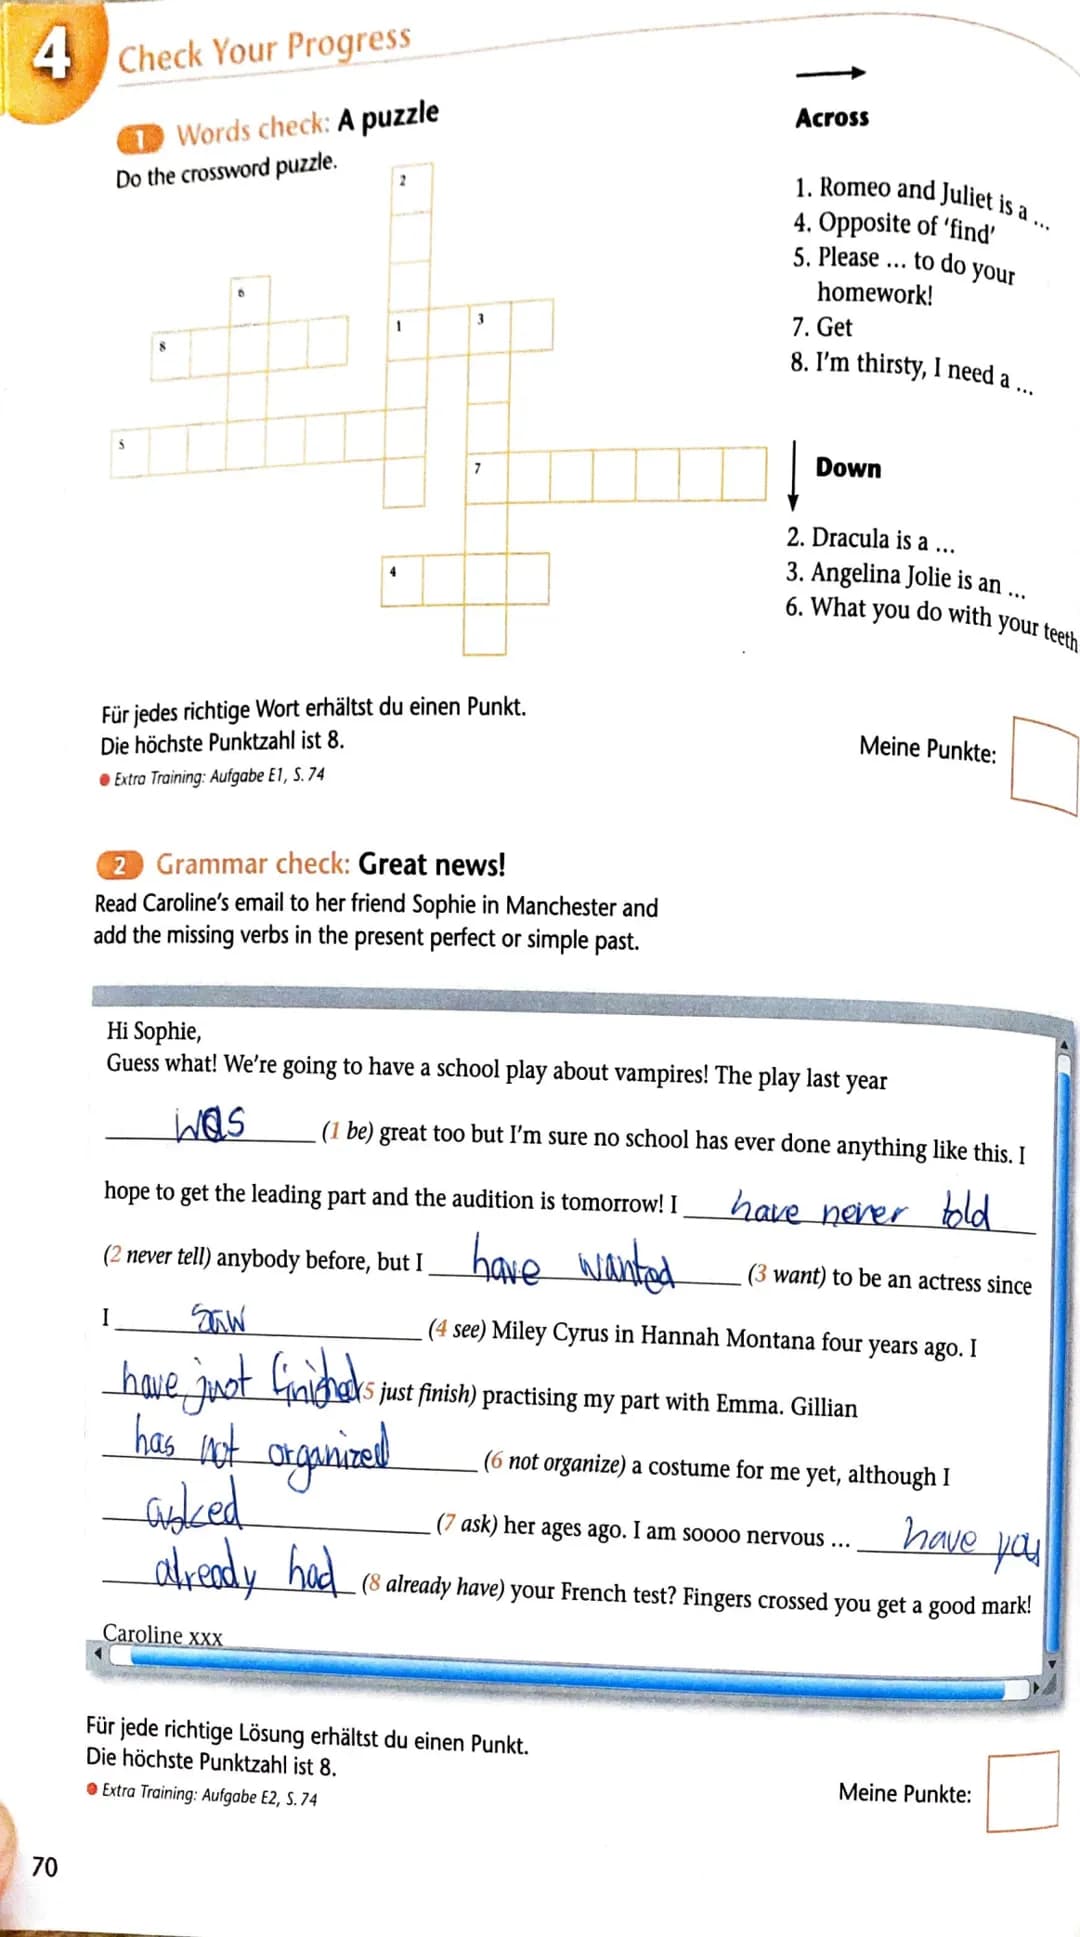 4 Check Your Progress
1 Words check: A puzzle
Do the crossword puzzle.
2
6
8
1
3
5
7
4
Across
1. Romeo and Juliet is a ...
4. Opposite of 'find'
5. Please ... to do your
homework!
7. Get
8. I'm thirsty, I need a ...
Down
2. Dracula is a ...
3. Angelina Jolie is an ...
6. What you do with your teeth
Für jedes richtige Wort erhältst du einen Punkt.
Die höchste Punktzahl ist 8.
Extra Training: Aufgabe E1, S. 74
Meine Punkte:
2 Grammar check: Great news!
Read Caroline's email to her friend Sophie in Manchester and
add the missing verbs in the present perfect or simple past.
Hi Sophie,
Guess what! We're going to have a school play about vampires! The play last year
was (1 be) great too but I'm sure no school has ever done anything like this. I
hope to get the leading part and the audition is tomorrow! I have never told
(2 never tell) anybody before, but I have wanted (3 want) to be an actress since
I saw (4 see) Miley Cyrus in Hannah Montana four years ago. I
have just finished (5 just finish) practising my part with Emma. Gillian
has not organized (6 not organize) a costume for me yet, although I
asked (7 ask) her ages ago. I am soooo nervous ... have you
already had (8 already have) your French test? Fingers crossed you get a good mark!
Caroline xxx
Für jede richtige Lösung erhältst du einen Punkt.
Die höchste Punktzahl ist 8.
Extra Training: Aufgabe E2, S. 74
Meine Punkte:
70